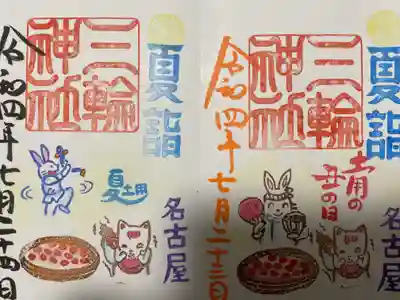 夏詣
土用の
丑の日
名古屋
三輪
神社
令和四年七月二十三日
夏詣
名古屋
夏土用
三輪
神社
令和四年七月二十四日